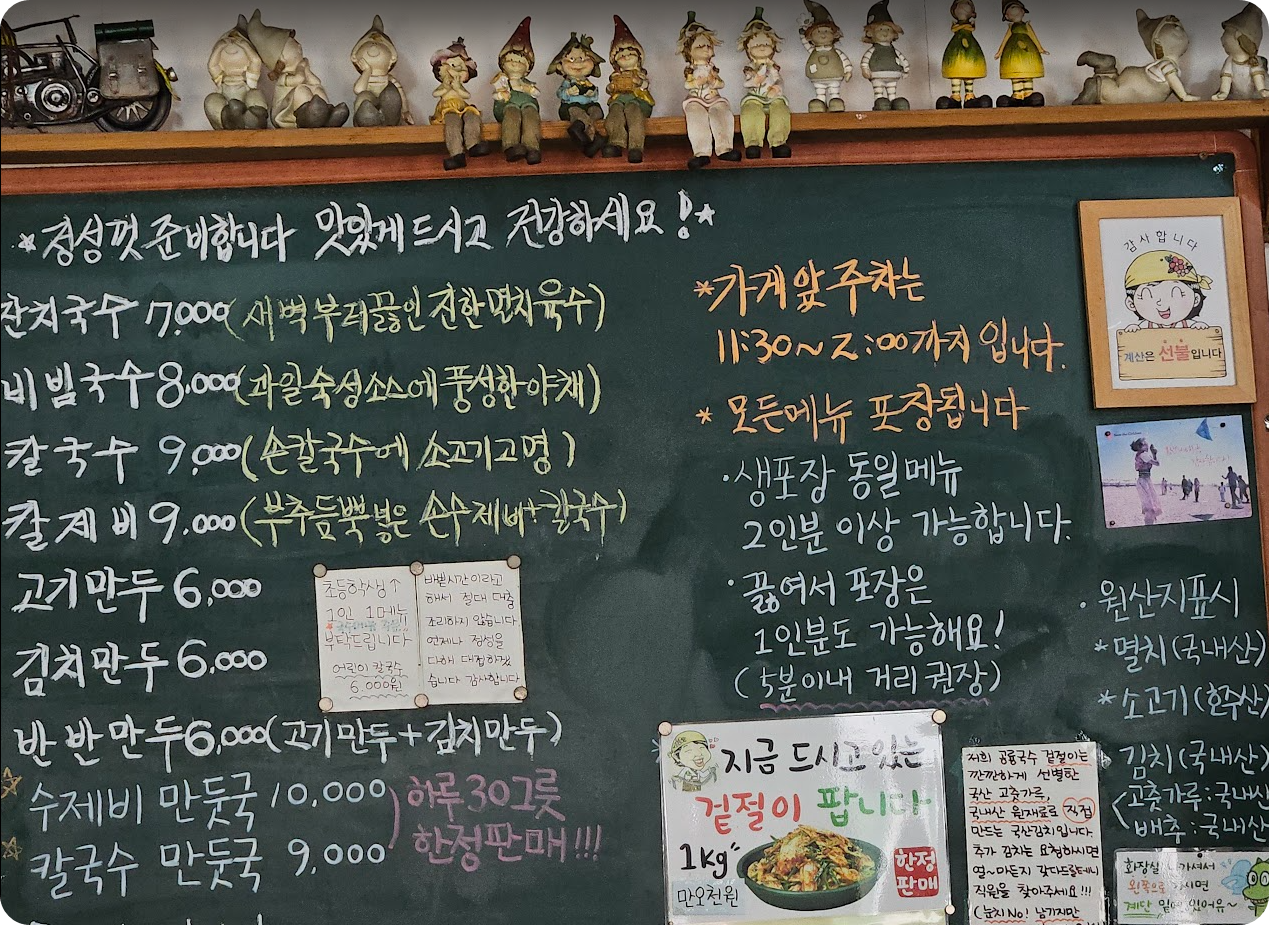 *정성껏 준비합니다 맛있게드시고 건강하세요!*
잔치국수 7,000(새벽부터끓인 진한멸치육수)
비빔국수 8,000(과일숙성소스에 풍성한야채)
칼국수 9,000(손칼국수에 소고기고명)
칼제비 9,000(부추듬뿍넣은 손수제비+칼국수)
고기만두 6,000
김치만두 6,000
반반만두 6,000(고기만두+김치만두)
수제비 만둣국 10,000
칼국수 만둣국 9,000
하루30그릇
한정판매!!!
초등학생↑
1인 1메뉴
부탁드립니다
어린이 칼국수
6.000원
바쁜시간이라고
해서 절대 대충
조리하지 않습니다
언제나 정성을
다해 대접하겠
습니다 감사합니다
*가게앞 주차는
11:30~2:00까지 입니다.
* 모든메뉴 포장됩니다
·생포장 동일메뉴
2인분 이상 가능합니다.
·끓여서 포장은
1인분도 가능해요!
(5분이내 거리 권장)
감사합니다
계산은 선불입니다
·원산지표시
*멸치(국내산)
*소고기(호주산)
김치(국내산)
고춧가루:국내산
배추:국내산
지금 드시고 있는
겉절이 팝니다
1kg
만오천원
한정
판매
저희 공룡국수 겉절이는
깐깐하게 선별한
국산 고춧가루,
국내산 원재료로 직접
만드는 국산김치입니다
추가 김치는 요청하시면
얼~마든지 갖다드릴테니
직원을 찾아주세요!!!
(눈치 No! 남기지만
화장실 나가셔서
왼쪽으로 가시면
계단 밑에 있어유~